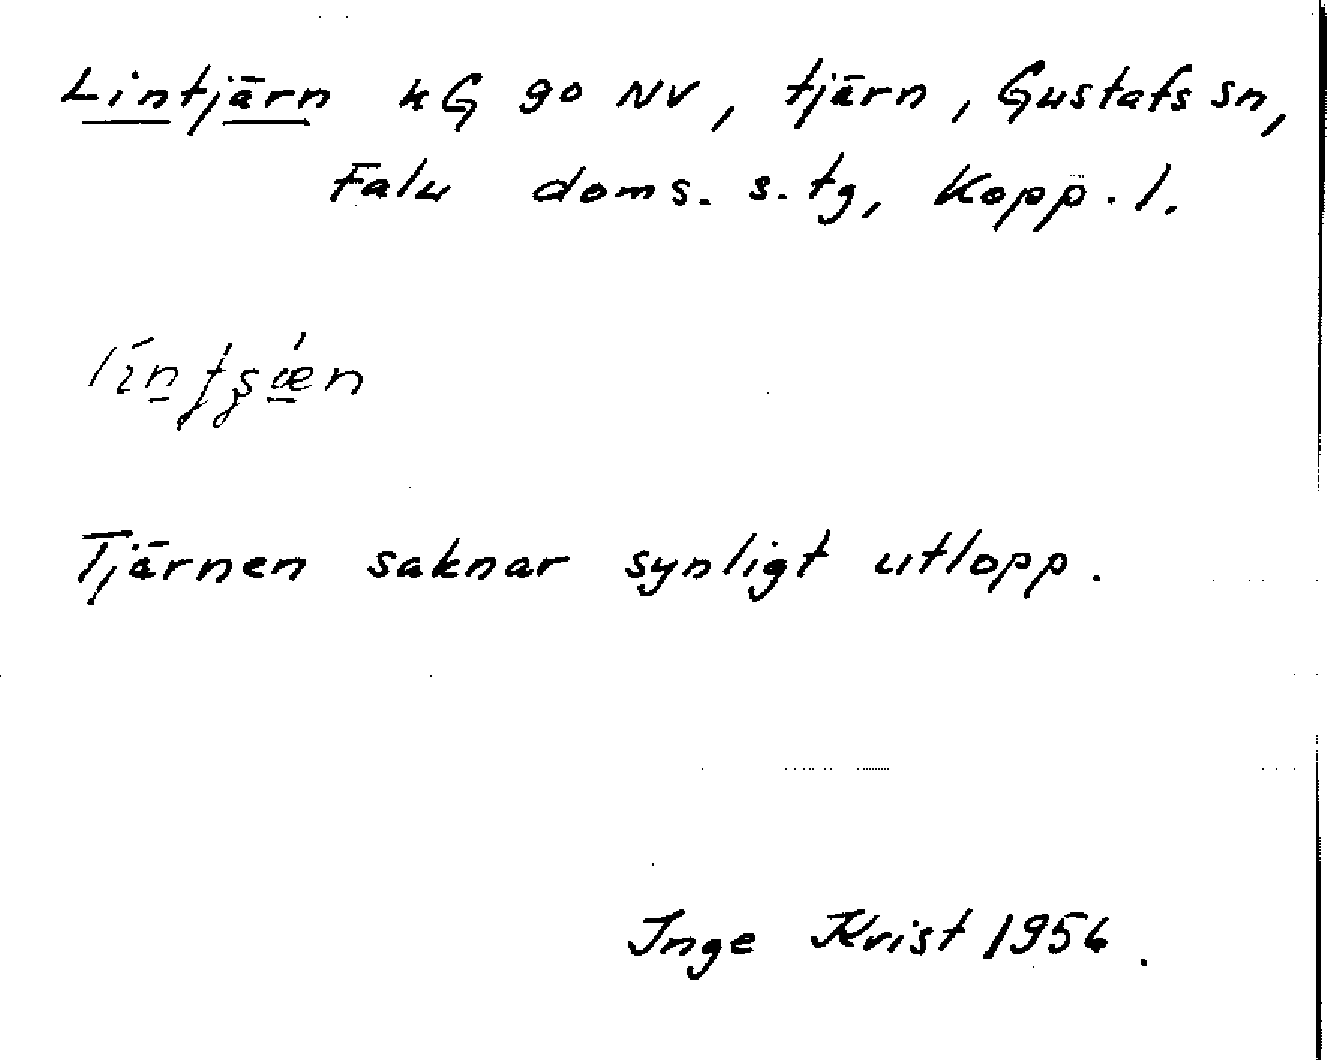 Lintjärn kG 90 NV, tjärn, Gustafs sn,
Falu doms. s. tg, Kopp. l.
Tjärnen saknar synligt utlopp.
Inge Krist 1956.